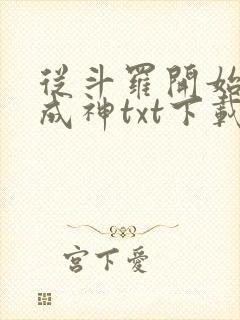 從斗羅開始
成神txt下載
宮下愛